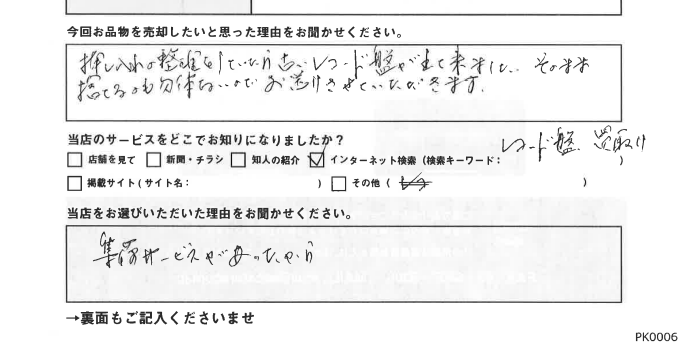 今回お品物を売却したいと思った理由をお聞かせください。
押し入れの整理をしていたら古いレコード盤が出て来ました。そのまま
捨てるのも勿体ないのでお送りさせていただきます。
当店のサービスをどこでお知りになりましたか？
レコード盤 買取り
□ 店舗を見て □ 新聞・チラシ □ 知人の紹介 ☑ インターネット検索（検索キーワード： ）
□ 掲載サイト（サイト名： ） □ その他（ ）
当店をお選びいただいた理由をお聞かせください。
集荷サービスがあったから
→裏面もご記入くださいませ
PK0006